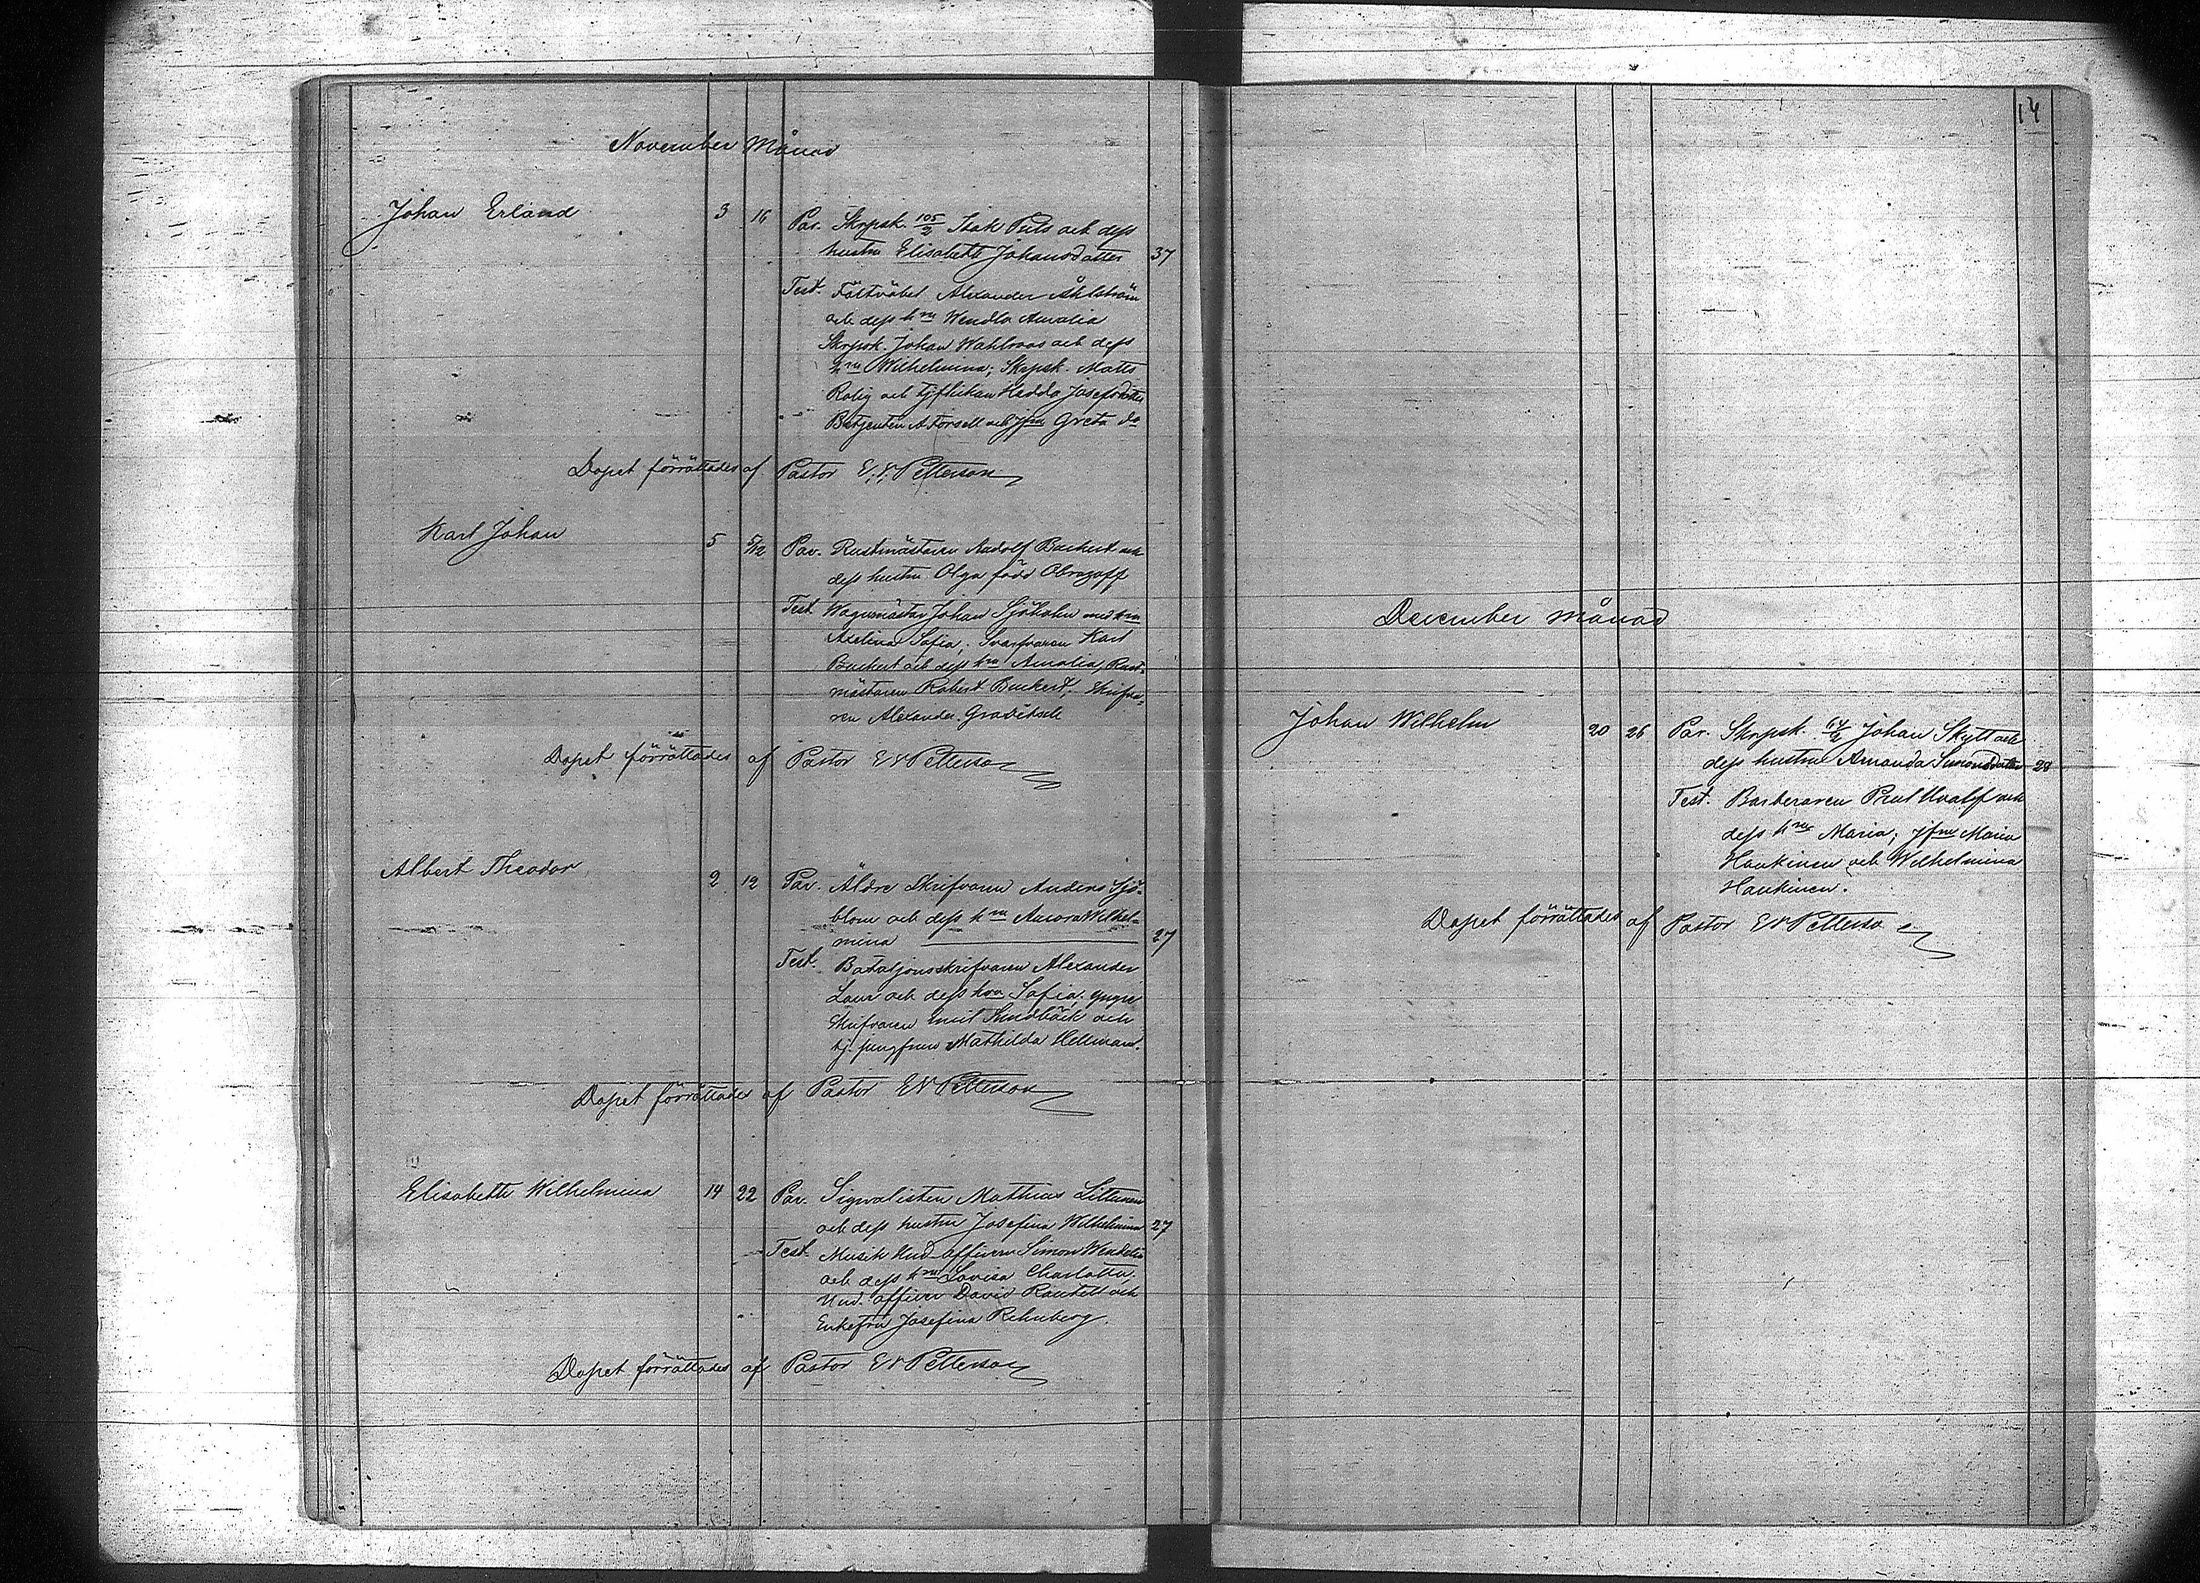 November Månad
Johan Erland 3 16 Par. Skrpsk. 105/2 Isak Puts och dess
hustru Elisabeth Johansdotter 37
Test. Fältväbel Alexander Åhlström
och dess hru Wendla Amalia
Skrpsk. Johan Wahlroos och dess
hru Wilhelmina; Skrpsk. Matts
Rolig och tjflickan Hedda Josefsdotter
Betjenten A Forsell och jfru Greta do
Dopet förrättades af Pastor E. V. Petterson
Karl Johan 5 5/12 Par. Rustmästaren Rudolf Buckert och
dess hustru Olga född Obrazoff
Test. Wagnmästar Johan Sjöholm med hru
Axelina Sofia; Svarfvaren Karl
Buckert och dess hru Amalia, Rust-
mästaren Robert Buckert, Skrifva-
ren Alexander
Dopet förrättades af Pastor E V Petterson
Albert Theodor 2 12 Par. Äldre Skrifvaren Anders Sjö-
blom och dess hru Aurora Wilhel-
mina 27
Test. Bataljonsskrifvaren Alexander
Laur och dess hru Sofia, yngre
Skrifvaren Emil Sundbäck och
tj. jungfrun Mathilda Hellman.
Dopet förrättades af Pastor E V Petterson
Elisabeth Wilhelmina 14 22 Par. Signalisten Mathias Littunen
och dess hustru Josefina Wilhelmina 27
Test. Musik Und. officern Simon Wendelin
och dess hru Lovisa Charlotta,
Und. officern David Rautell och
Enkefru Josefina Rehnberg.
Dopet förrättades af Pastor E V Petterson
14
December Månad
Johan Wilhelm 20 26 Par. Skrpsk. 64/2 Johan Skytt och
dess hustru Amanda Simonsdotter 28
Test. Barberaren Paul och
dess hru Maria; jfru Maria
Haukinen och Wilhelmina
Haukinen.
Dopet förrättades af Pastor E V Petterson